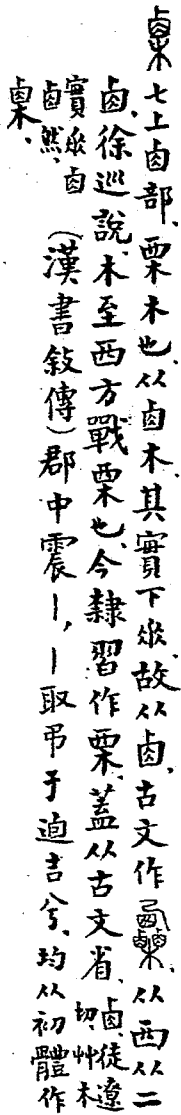 七上卤部、栗木也、从卤木、其實下𠂹、故从卤、古文作𣡼、从西从二
卤、徐巡說、木至西方戰栗也、今隸習作栗、蓋从古文省、卤、徒遼切、艸木
實𠂹卤卤然、(漢書敘傳)郡中震丨,丨取弔于逌吉兮、均从初體作
㮚、